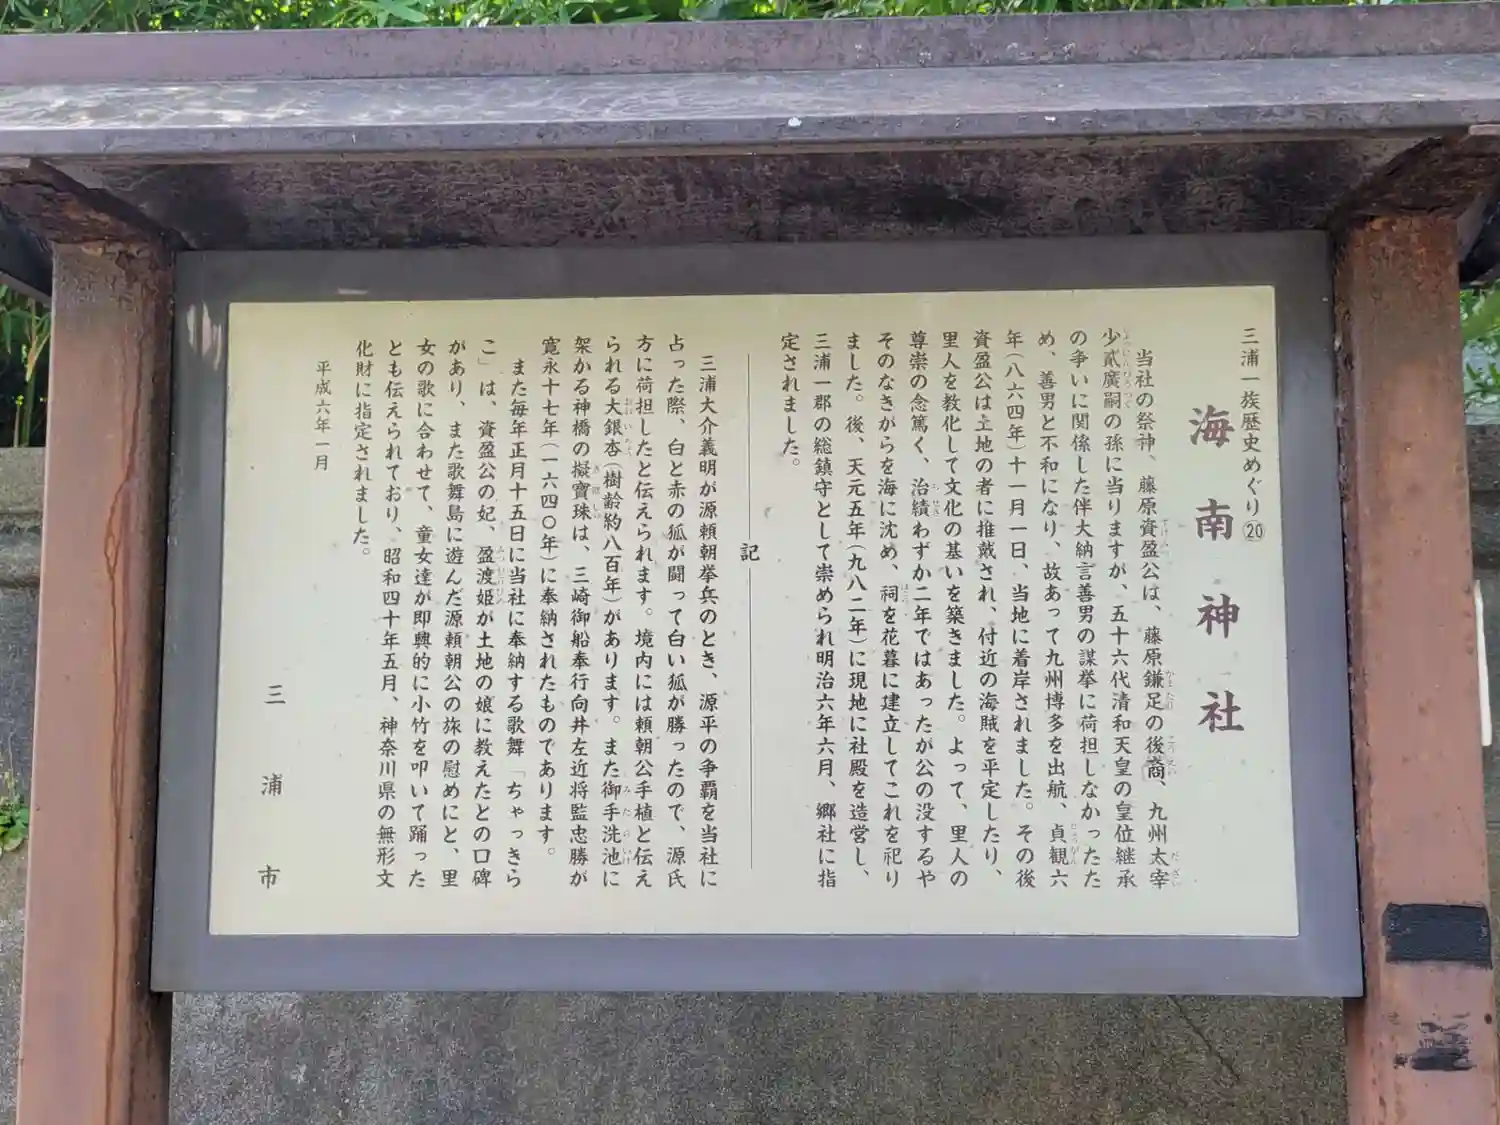 三浦一族歴史めぐり⑳
海南神社
当社の祭神、藤原資盈公は、藤原鎌足の後裔、九州太宰
少貳廣嗣の孫に当りますが、五十六代清和天皇の皇位継承
の争いに関係した伴大納言善男の謀挙に荷担しなかったた
め、善男と不和になり、故あって九州博多を出航、貞観六
年(八六四年)十一月一日、当地に着岸されました。その後
資盈公は土地の者に推戴され、付近の海賊を平定したり、
里人を教化して文化の基いを築きました。よって、里人の
尊崇の念篤く、治績わずか二年ではあったが公の没するや
そのなきがらを海に沈め、祠を花暮に建立してこれを祀り
ました。後、天元五年(九八二年)に現地に社殿を造営し、
三浦一郡の総鎮守として崇められ明治六年六月、郷社に指
定されました。
記
三浦大介義明が源頼朝挙兵のとき、源平の争覇を当社に
占った際、白と赤の狐が闘って白い狐が勝ったので、源氏
方に荷担したと伝えられます。境内には頼朝公手植と伝え
られる大銀杏(樹齢約八百年)があります。また御手洗池に
架かる神橋の擬寶珠は、三崎御船奉行向井左近将監忠勝が
寛永十七年(一六四〇年)に奉納されたものであります。
また毎年正月十五日に当社に奉納する歌舞「ちゃっきら
こ」は、資盈公の妃、盈渡姫が土地の娘に教えたとの口碑
があり、また歌舞島に遊んだ源頼朝公の旅の慰めにと、里
女の歌に合わせて、童女達が即興的に小竹を叩いて踊った
とも伝えられており、昭和四十年五月、神奈川県の無形文
化財に指定されました。
平成六年一月
三浦市